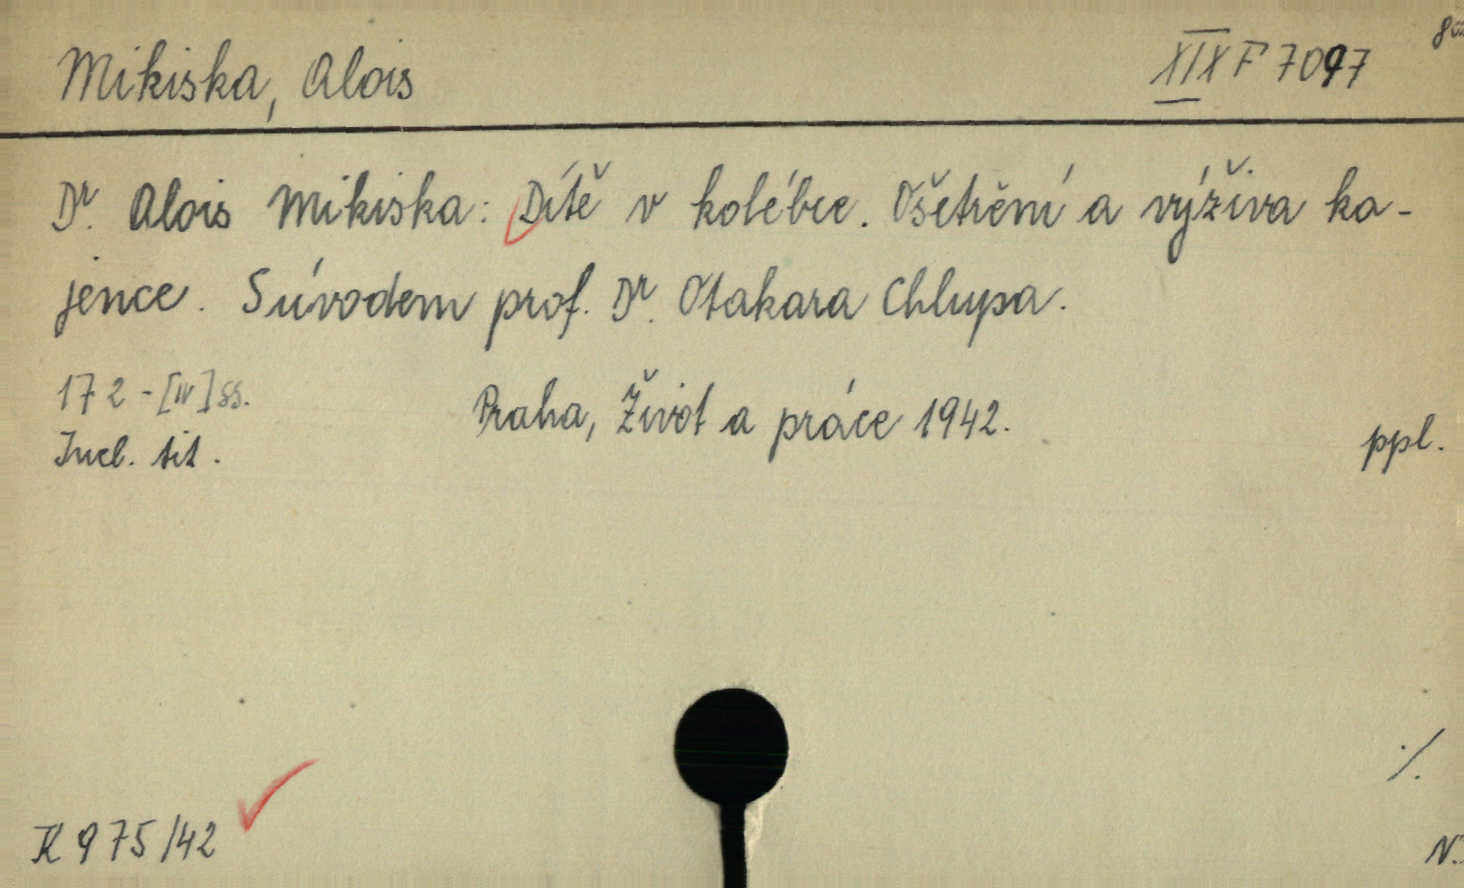 Mikiska, Alois
XIX F 7097
Dr. Alois Mikiska: Dítě v kolébce. Ošetření a výživa ko-
jence. S úvodem prof. Dr. Otakara Chlupa.
172 - [IV] ss.
Praha, Život a práce 1942.
Incl. tit.
ppl.
./.
K 975/42
N.